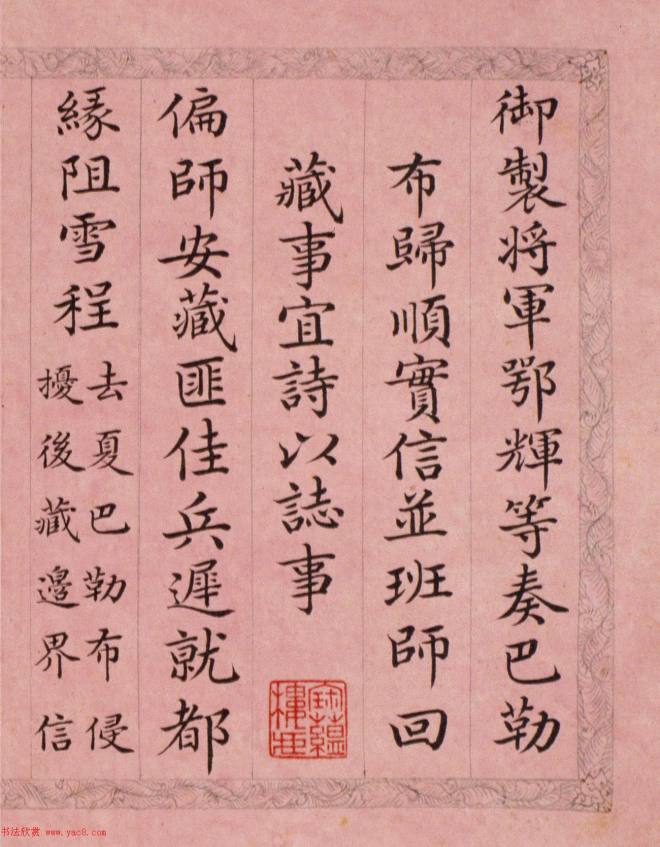 御製将軍鄂輝等奏巴勒
布歸順實信並班師回
藏事宜詩以誌事
偏師安藏匪佳兵遲就都
緣阻雪程去夏巴勒布侵
擾後藏邊界信
寶蘊樓印
书法欣赏 www.yac8.com